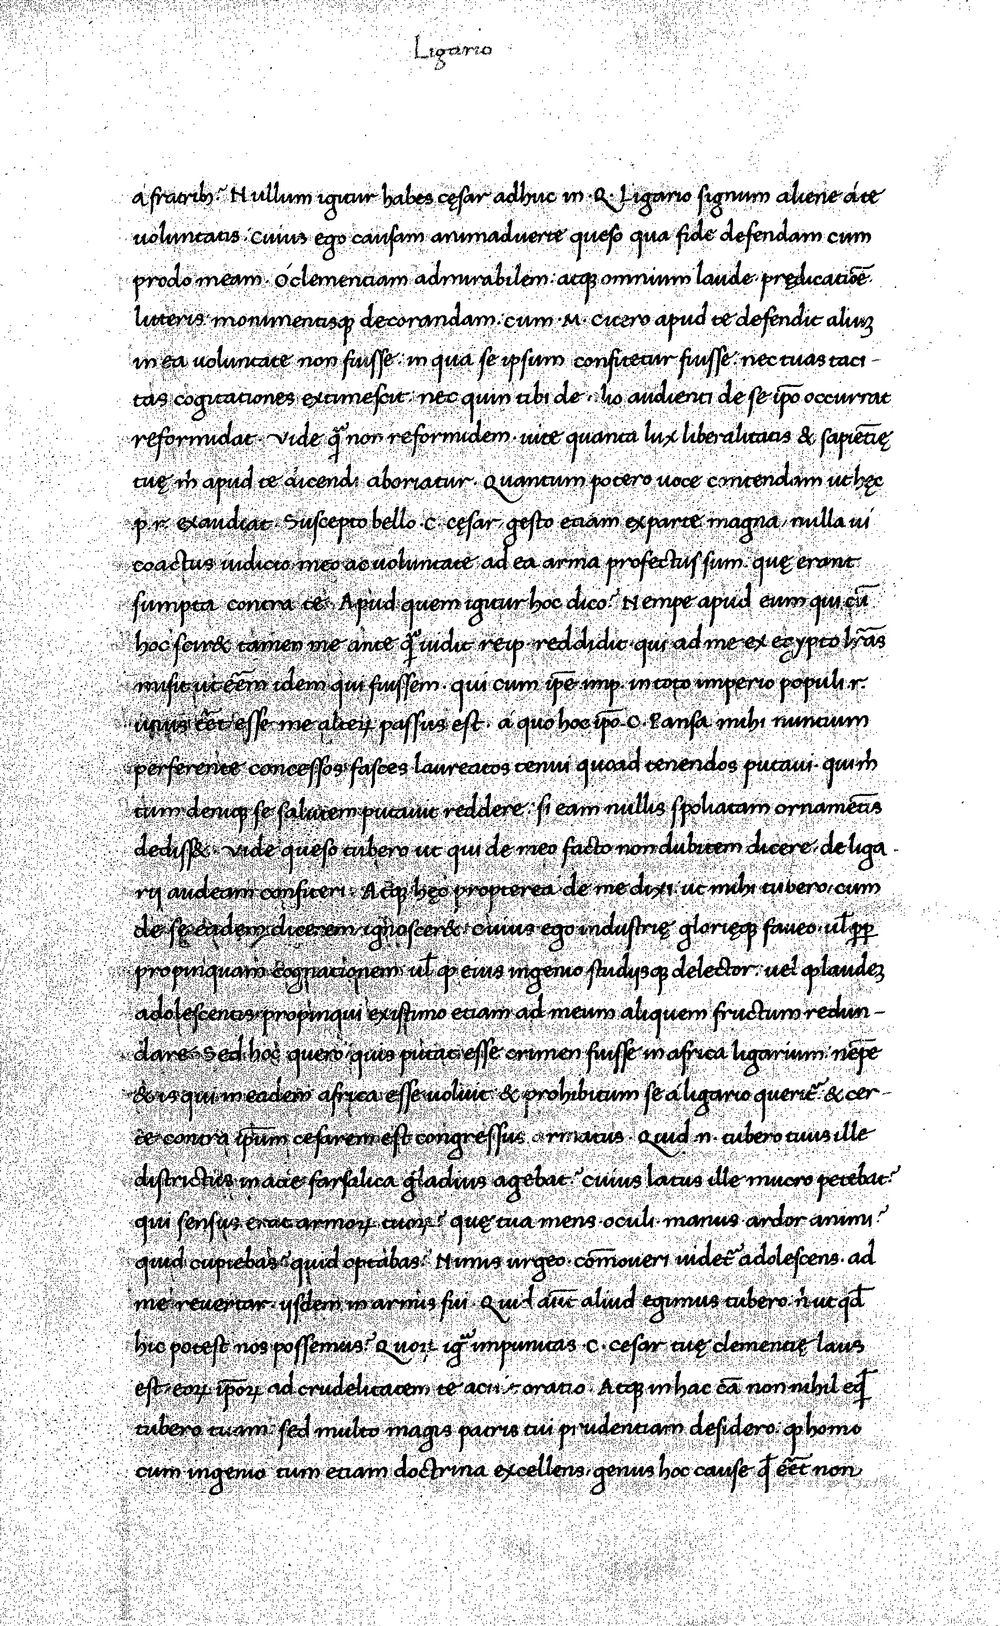 Ligario
a fratrib;? Nullum igitur habes cęsar adhuc in .Q. Ligario signum aliene a te
uoluntatis. Cuius ego causam animaduerte queso qua fide defendam cum
prodo meam. O clementiam admirabilem. atq; omnium laude. prędicatiōe.
litteris. monimentisq; decorandam. cum .M. Cicero apud te defendit aliuʒ
in ea uoluntate non fuisse. in qua se ipsum confitetur fuisse. nec tuas taci-
tas cogitationes extimescit. nec quin tibi de audienti de se ip̄o occurrat
reformidat. Vide q̄ non reformidem. quanta lux liberalitatis & sapiētię
tuę m̄ apud te dicendi aboriatur. Quantum potero uoce contendam ut hęc
.p.r. exaudiat. Suscepto bello .C. cęsar gesto etiam ex parte magna, nulla ui
coactus iudicio meo ac uoluntate ad ea arma profectus sum. quę erant
sumpta contra te. Apud quem igitur hoc dico? Nempe apud eum qui cū
hoc scir& tamen me ante q̄ uidit reip. reddidit. qui ad me ex egypto lr̄as
misit ut eēm idem qui fuissem. qui cum ip̄e imp. in toto imperio populi .r.
unus eēt esse me alteꝝ passus est. a quo hoc ip̄o .C. Pansa mihi nuntium
perferente concessos fasces laureatos tenui quoad tenendos putaui. qui m̄
tum deniq; se salutem putauit reddere. si eam nullis spoliatam ornamētis
dediss&. Vide queso tubero ut qui de meo facto non dubitem dicere, de liga-
rij audeam confiteri. Atq; hęc propterea de me dixi. ut mihi tubero, cum
de se eadem dicerem ignoscer&. cuius ego industrię glorięq; faueo. ul̄ ꝓp
propinquam cognationem. ul̄ ꝙ eius ingenio studijsq; delector. uel ꝙ laudeʒ
adolescentis propinqui existimo etiam ad meum aliquem fructum redun-
dare. Sed hoc quero quis putat esse crimen fuisse in africa ligarium. nēpe
& is qui in eadem africa esse uoluit & prohibitum se a ligario querit̄. & cer-
te contra ip̄um cesarem est congressus armatus. Quid .n. tubero tuus ille
districtus in acie farsalica gladius agebat? cuius latus ille mucro petebat?
qui sensus erat armoꝝ tuoꝝ? quę tua mens. oculi. manus ardor animi?
quid cupiebas? quid optabas? Nimis urgeo. cōmoueri uidet̄ adolescens. ad
me reuertar. ijsdem in armis fui. Quid aūt aliud egimus tubero. n̄ ut qd̄
hic potest nos possemus? Quoꝝ igr̄ impunitas .C. cesar tuę clementię laus
est. eoꝝ ip̄oꝝ ad crudelitatem te acuet oratio. Atq; in hac cā non nihil eq̄d
tubero tuam. sed multo magis patris tui prudentiam desidero. ꝙ homo
cum ingenio tum etiam doctrina excellens, genus hoc cause qd̄ eēt non